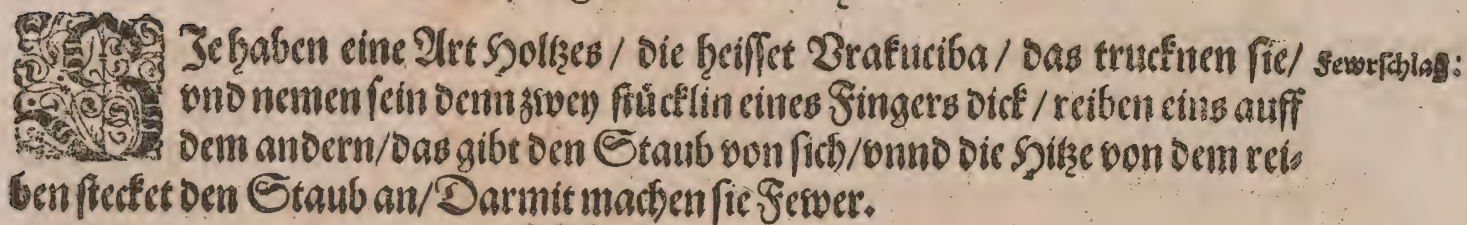 SJe haben eine Art Holtzes / die heisset Vrakuciba / das trucknen sie/ Fewrschlag:
vnd nemen sein denn zwey stücklin eines Fingers dick / reiben eins auff
dem andern/das gibt den Staub von sich/vnnd die Hitze von dem rei-
ben stecket den Staub an/Darmit machen sie Fewer.